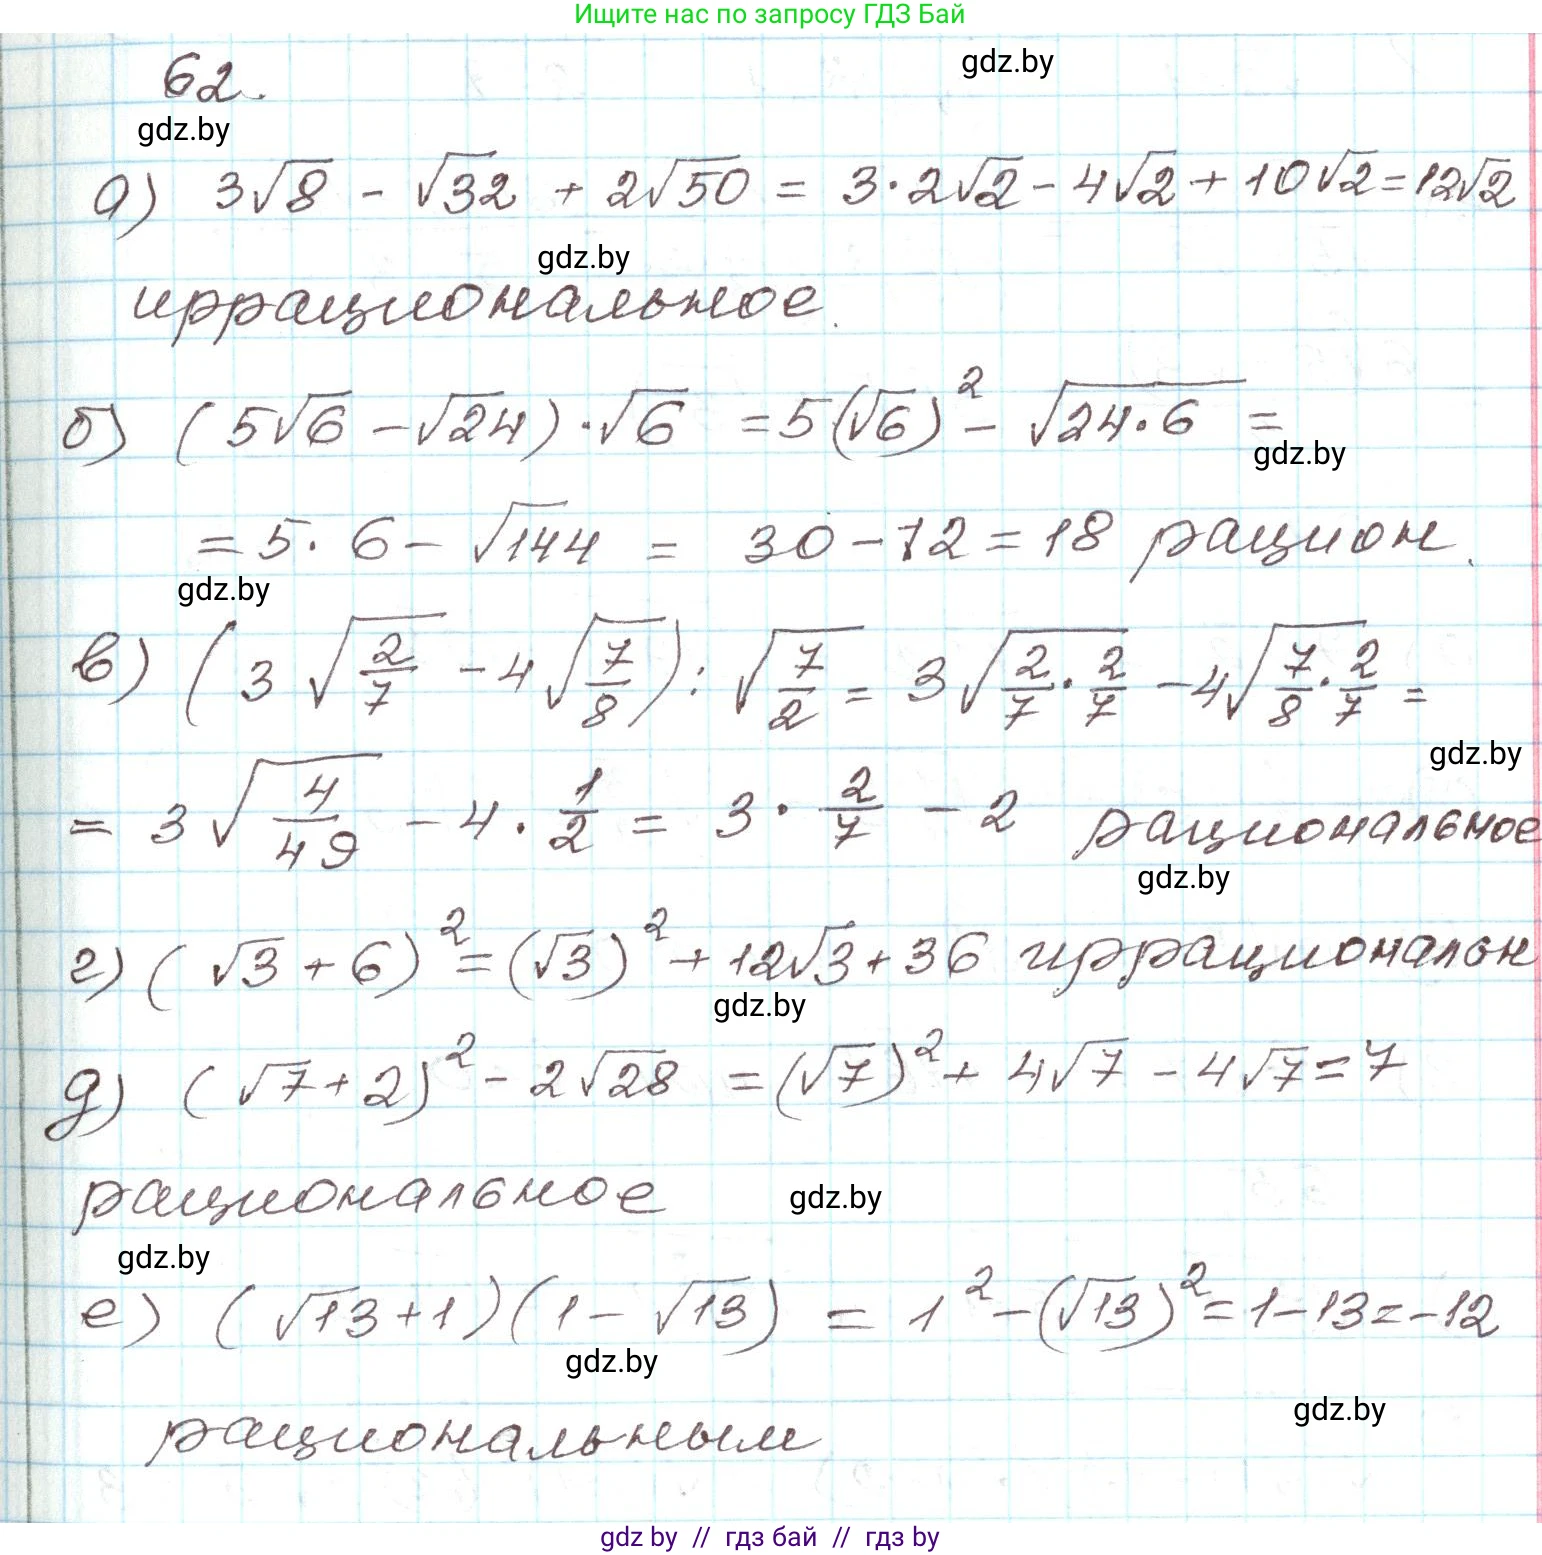 Ищите нас по запросу ГДЗ Бай
62.
gdz.by
gdz.by
а) 3√8 - √32 + 2√50 = 3·2√2 - 4√2 + 10√2 = 12√2
gdz.by
иррациональное.
б) (5√6 - √24)·√6 = 5(√6)² - √24·6 =
gdz.by
= 5·6 - √144 = 30 - 12 = 18 рацион.
gdz.by
в) (3√2/7 - 4√7/8) : √7/2 = 3√2/7·2/7 - 4√7/8·2/7 =
gdz.by
= 3√4/49 - 4·1/2 = 3·2/7 - 2 рациональное
gdz.by
г) (√3 + 6)² = (√3)² + 12√3 + 36 иррациональн
gdz.by
д) (√7 + 2)² - 2√28 = (√7)² + 4√7 - 4√7 = 7
рациональное
gdz.by
gdz.by
е) (√13 + 1)(1 - √13) = 1² - (√13)² = 1 - 13 = -12
gdz.by
gdz.by
рациональным
gdz by // гдз бай // гдз by